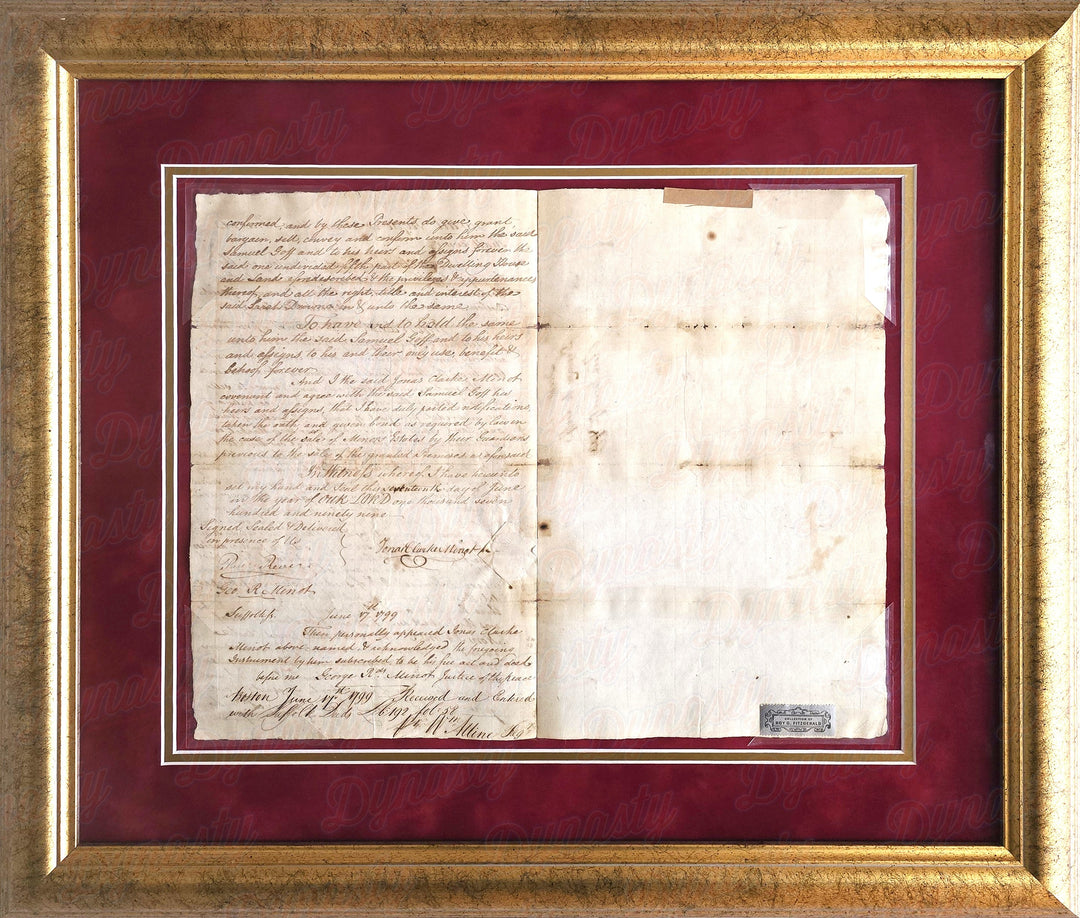 confirmed, and by these Presents do give, grant
bargain, sell, convey and confirm unto him the said
Samuel Goff and to his heirs and assigns forever the
said one undivided fifth part of the Dwelling House
and Land aforedescribed, & the privileges & appurtenances
thereof, and all the right, title and interest of the
said Sarah in & unto the same
To have and to hold the same
unto him the said Samuel Goff and to his heirs
and assigns, to his and their only use, benefit &
behoof forever
And I the said Jonas Clarke Minot
covenant and agree with the said Samuel Goff his
heirs and assigns, that I have duly posted notifications,
taken the oath and given bond as required by law in
the case of the sale of Minors Estates by their Guardians
previous to the sale of the granted Premises as aforesaid
In Witness whereof I have hereunto
set my hand and Seal this seventeenth day of June
in the year of OUR LORD one thousand seven
hundred and ninety nine
Signed, Sealed & Delivered
in presence of Us
Jonas Clarke Minot
Paul Revere
Geo. R. Minot
Suffolk ss. June 17th 1799
Then personally appeared Jonas Clarke
Minot above named & acknowledged the foregoing
Instrument by him subscribed to be his free act and deed
before me George Rds Minot Justice of the peace
Boston June 17th 1799 Received and Entered
with Suffolk Deeds Lib 192 fol. 58
Wm Allene Regr
COLLECTION OF
ROY G. FITZGERALD
Dynasty